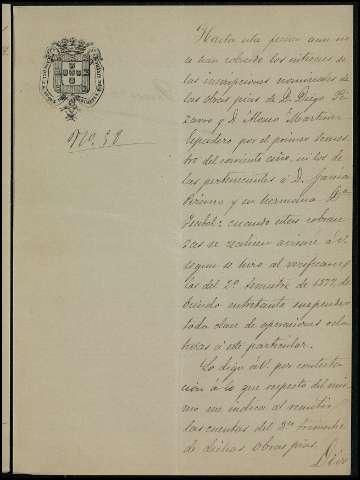 Nº 38
Hasta esta fecha aun no
se han cobrado los intereses de
las inscripciones nominales de
las obras pias de D. Diego Pi
zarro y D. Alonso Martinez
Espadero por el primer semes
tre del corriente año, ni los de
las pertenecientes á D. Juana
Pizarro y su hermana Dª
Isabel: cuando estas cobran
zas se realicen avisaré á V.
segun se hizo al verificarse
las del 2º semestre de 1877, de
biendo entretanto suspender
toda clase de operaciones rela
tivas á este particular.
Lo digo á V. por contesta
cion á lo que respecto del mis
mo me indica al remitir
las cuentas del 2º trimestre
de dichas obras pias.
Dios